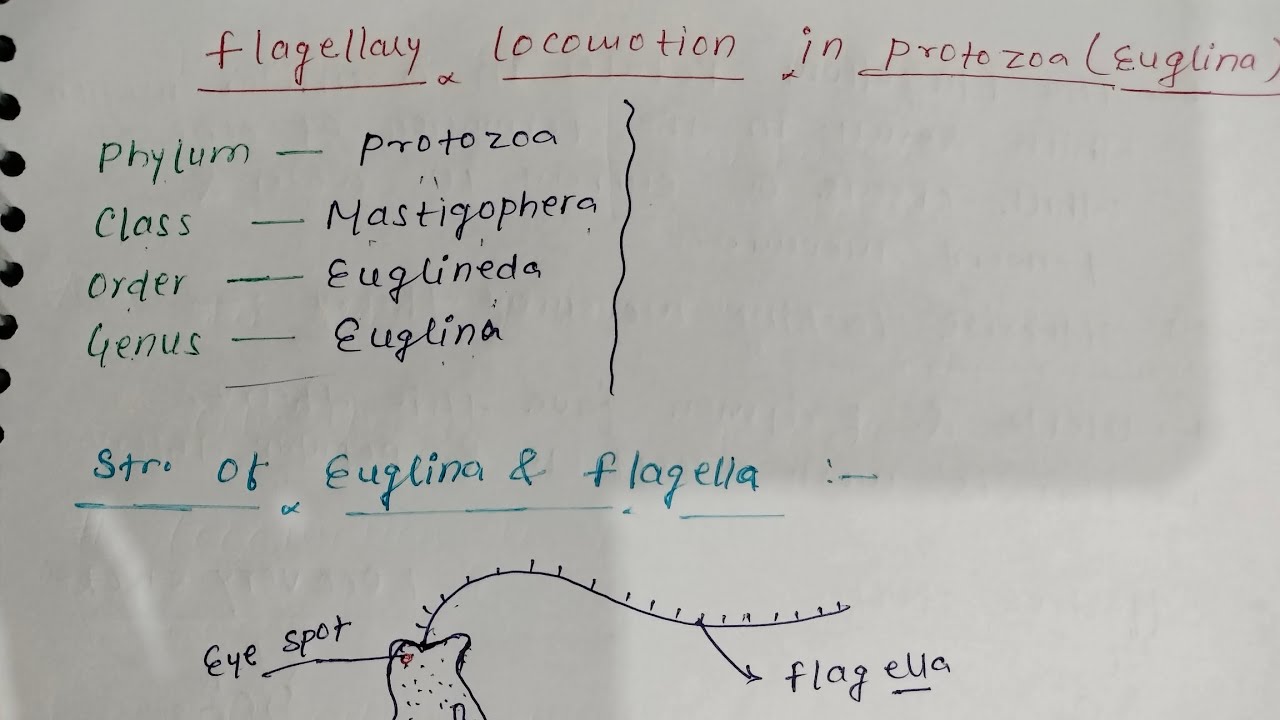 flagellary locomotion in protozoa (Euglina)
Phylum — protozoa
Class — Mastigophera
Order — Euglineda
Genus — Euglina
Str. of Euglina & flagella :-
Eye spot
flagella